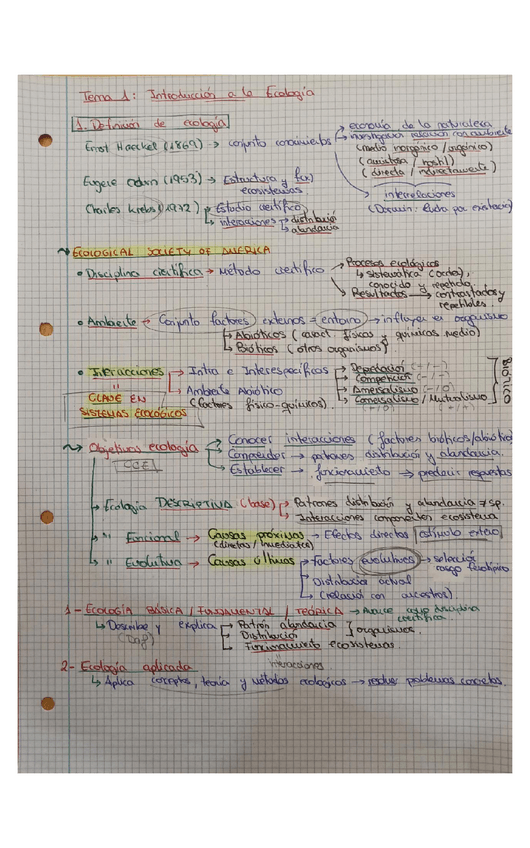 Tema 1: Introducción a la Ecología
1. Definición de ecología
Ernst Haeckel (1869) → conjunto conocimientos → economía de la naturaleza
→ investigación relación con ambiente
(medio inorgánico / orgánico)
(amistosa / hostil)
(directa / indirectamente)
Eugene Odum (1953) → Estructura y fxs
ecosistemas
interrelaciones
(Darwin: lucha por existencia)
Charles Krebs (1972) → Estudio científico
→ interacciones → distribución
→ abundancia
ECOLOGICAL SOCIETY OF AMERICA
• Disciplina científica → método científico → Procesos ecológicos
↳ sistemática (orden),
conocido y repetido
→ Resultados → contrastados y
repetibles
• Ambiente → Conjunto factores externos = entorno → influyen en organismo
→ Abióticos (caract. físicas y químicas medio)
→ Bióticos (otros organismos)
• Interacciones → Intra e Interespecíficos → Depredación (+/-)
→ Competición (-/-)
→ Amensalismo (-/0)
→ Comensalismo / Mutualismo
(+/0) (+/+)
BIÓTICO
"
CLAVE EN
SISTEMAS ECOLÓGICOS
→ Ambiente Abiótico
(factores físico-químicos).
Objetivos ecología → Conocer interacciones (factores bióticos/abióticos)
(CCE) → Comprender → patrones distribución y abundancia.
→ Establecer → funcionamiento → predecir respuestas
→ Ecología DESCRIPTIVA (base) → Patrones distribución y abundancia ≠ sp.
→ Interacciones componentes ecosistema
→ " Funcional → Causas próximas → Efectos directos estímulo externo
(directas / inmediatas)
→ " Evolutiva → Causas últimas → Factores evolutivos → selección
rasgo fenotípico
→ Distribución actual
→ (relación con ancestros).
1 - ECOLOGÍA BÁSICA / FUNDAMENTAL / TEÓRICA → Avance como disciplina
científica
↳ Describe y explica → Patrón abundancia
→ Distribución ] organismos.
→ Funcionamiento ecosistemas.
interacciones
2 - Ecología aplicada
↳ Aplica conceptos, teoría y métodos ecológicos → resolver problemas concretos.